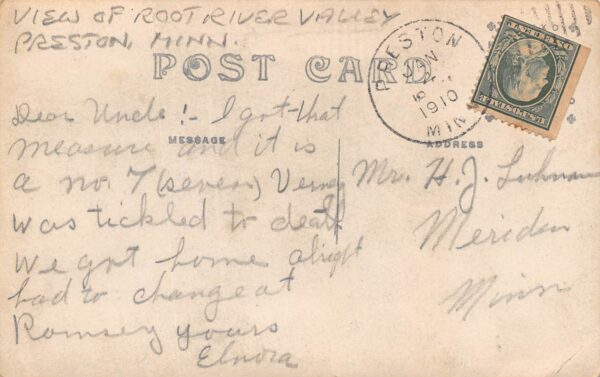 VIEW OF ROOT RIVER VALLEY
PRESTON, MINN.
POST CARD
PRESTON
JUN
1910
MIN
MESSAGE
ADDRESS
Dear Uncle! - I got that
measure and it is
a no. 7 (seven)
was tickled to death
We got home alright
had to change at
Ramsey yours
Elnora
Mr. H. J.
Meriden
Minn